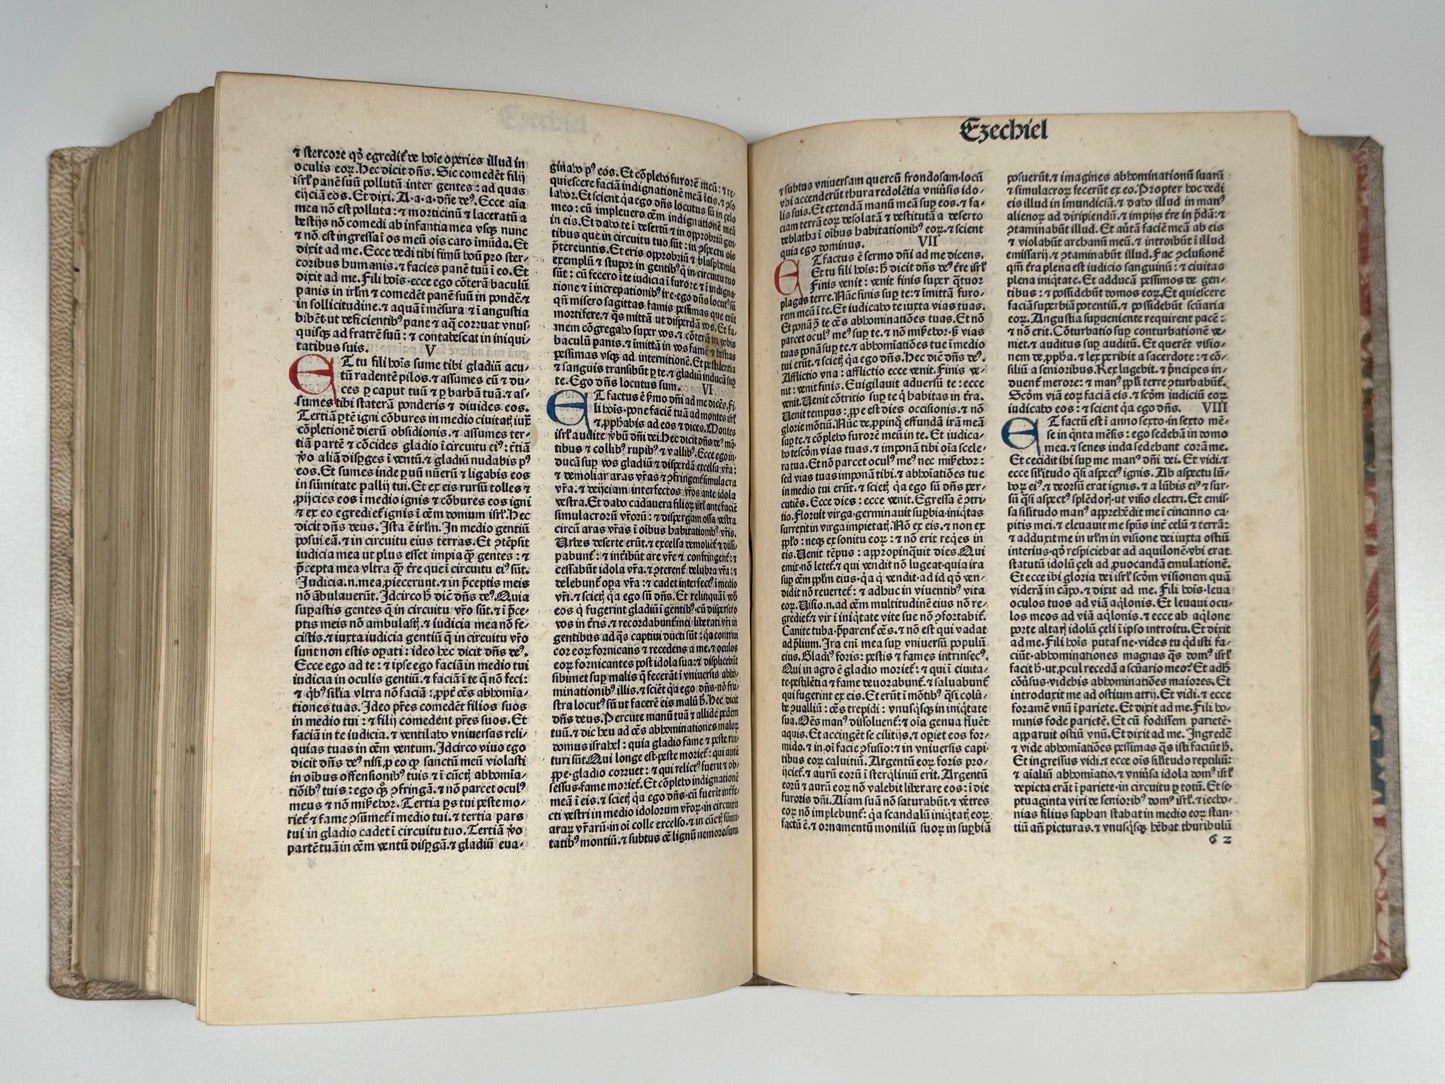 ⁊ stercore qď egredit᷑ de hoīe operies illud in
oculis eoꝝ. Hec dicit dn̄s. Sic comedēt filij
isrl̄ panē suū pollutū inter gentes: ad quas
eijciam eos. Et dixi. A.a.a.dn̄e deꝰ. Ecce aīa
mea nō est polluta: ⁊ morticinū ⁊ laceratū a
bestijs nō comedi ab infantia mea vsqꝫ nunc
⁊ nō est ingressa ī os meū oīs caro imūda. Et
dixit ad me. Ecce dedi tibi fimū boū pro ster-
coribus humanis. ⁊ facies panē tuū ī eo. Et
dixit ad me. Fili hoīs. ecce ego cōterā baculū
panis in irlm̄ ⁊ comedēt panē suū in pondē ⁊
in sollicitudine. ⁊ aquā ī mēsura ⁊ ī angustia
bibēt. ut deficientibꝰ pane ⁊ aq̄ corruat vnus-
quisqꝫ ad fratrē suū: ⁊ contabescat in iniqui-
tatibus suis. V
ETtu fili hoīs sume tibi gladiū acu-
tū radentē pilos. ⁊ assumes eū ⁊ du-
ces ꝑ caput tuū ⁊ ꝑ barbā tuā. ⁊ as-
sumes tibi staterā ponderis ⁊ diuides eos.
Tertiā ꝑtē igni cōbures in medio ciuitatꝭ iuxͭ
cōpletionē dierū obsidionis. ⁊ assumes ter-
tiā partē ⁊ cōcides gladio ī circuitu eiꝰ: t̄tiā
ꝟo aliā disꝑges ī ventū. ⁊ gladiū nudabis pꝰ
eos. Et sumes inde ꝑuū nūerū ⁊ ligabis eos
in sūmitate pallij tui. Et ex eis rursū tolles ⁊
ꝓijcies eos ī medio ignis ⁊ cōbures eos igni
⁊ ex eo egrediet᷑ ignis ī oēm domum isrl̄. Hec
dicit dn̄s deus. Ista ē irlm̄. In medio gentiū
posui eā. ⁊ in circuitu eius terras. Et ꝯtēpsit
iudicia mea ut plus esset impia qꝫ gentes: ⁊
p̄cepta mea vltra qꝫ t̄re que ī circuitu eiꝰ sūt.
Iudicia.n.mea ꝓiecerunt. ⁊ in p̄ceptis meis
nō ābulauerūt. Idcirco h̄ dic̄ dn̄s deꝰ. Quia
supastis gentes q̄ in circuitu vr̄o sūt. ⁊ ī p̄ce-
ptis meis nō ambulastꝭ. ⁊ iudicia mea nō fe-
cistis. ⁊ iuxta iudicia gentiū q̄ in circuitu vr̄o
sunt non estis oꝑati: ideo hec dicit dn̄s deꝰ.
Ecce ego ad te: ⁊ ipse ego faciā in medio tui
iudicia in oculis gentiū. ⁊ faciā ī te q̄ nō feci:
⁊ qͥbꝰ sil̄ia vltra nō faciā: ꝓpꝉ oēs abhomia-
tiones tuas. Ideo pr̄es comedēt filios suos
in medio tui: ⁊ filij comedent pr̄es suos. Et
faciā in te iudicia. ⁊ ventilabo vniuersas reli-
quias tuas in oēm ventum. Idcirco viuo ego
dicit dn̄s deꝰ. nisi ꝓ eo ꝙ sanctū meū violasti
in oībus offensionibꝰ tuis ⁊ ī cūctꝭ abhomīa-
tiōibꝰ tuis: ego qꝫ ꝯfringā. ⁊ nō parcet oculꝰ
meus ⁊ nō miẜebor. Tertia ꝑs tui peste mo-
riet᷑ ⁊ fame ꝯsumet᷑ ī medio tui. ⁊ tertia pars
tui in gladio cadet ī circuitu tuo. Tertiā ꝟo
partē tuā in oēm ventū disꝑgā. ⁊ gladiū eua-
ginabo pꝰ eos. Et cōplebo furorē meū: ⁊ re-
quiescere faciā indignationē meā ī eis. ⁊ ꝯso-
labor. Et scient qꝛ ego dn̄s locutus sū in zelo
meo: cū impleuero oēm indignationē meā
in eis. Et dabo te ī desertū ⁊ in opprobriū gen-
tibus que in circuitu tuo sūt: in ꝯspectu oīs
p̄tereuntis. Et eris opprobriū ⁊ blasphemia
exemplū ⁊ stupor in gentibꝰ q̄ in circuitu tuo
sūt: cū fecero ī te iudicia ī furore ⁊ ī indigna-
tione ⁊ ī increpationibꝰ ire. ego dn̄s locutꝰ sū
qn̄ misero sagittas famis pessimas que erūt
mortifere. ⁊ q̄s mittā ut disꝑdā vos. Et fa-
mem cōgregabo super vos. ⁊ cōterā in vobis
baculū panis. ⁊ imittā in vos famē ⁊ bestias
pessimas vsqꝫ ad internitionē. Et pestilentia
⁊ sanguis transibūt ꝑ te. ⁊ gladiū inducā suꝑ
te. Ego dn̄s locutus sum. VI
ETfactus ē ẜmo dn̄i ad me dicēs. Fi-
li hoīs. pone faciē tuā ad montes isrl̄
⁊ ꝓphabis ad eos ⁊ dices. Montes
isrl̄ audite ꝟbū dn̄i dei. Hec dicit dn̄s deꝰ mō-
tibus ⁊ collibꝰ rupibꝰ ⁊ vallibꝰ. Ecce ego in-
ducā suꝑ vos gladiū ⁊ disꝑdā excelsa vr̄a:
⁊ demoliar aras vr̄as ⁊ ꝯfringent᷑ simulacra
vr̄a. ⁊ deijciam interfectos vr̄os ante idola
vestra. Et dabo cadauera filioꝝ isrl̄ ante faciē
simulacrorū vr̄orū: ⁊ dispergam ossa vestra
circū aras vr̄as ī oībus habitationibꝰ vr̄is.
Vrbes deserte erūt. ⁊ excelsa demoliēt᷑ ⁊ dissi-
pabunt᷑: ⁊ interibūt are vr̄e ⁊ confringent᷑: ⁊
cessabūt idola vr̄a. ⁊ ꝯterent᷑ delubra vr̄a: ⁊
delebunt᷑ oꝑa vr̄a: ⁊ cadet interfectꝰ ī medio
vr̄i. ⁊ scietꝭ qꝛ ego sū dn̄s. Et relinquā ī vob̄
eos q̄ fugerint gladiū ī gentibꝰ. cū disꝑsero
vos in t̄ris. ⁊ recordabunt᷑ mei liberati vr̄i in
gentibus ad q̄s captiui ducti sūt: qꝛ contriui
cor eoꝝ fornicans ⁊ recedens a me. ⁊ oculos
eoꝝ fornicantes post idola sua: ⁊ displicebūt
sibimet suꝑ malis q̄ fecerāt ī vniuersis abho-
minationibꝰ illis. ⁊ sciēt qꝛ ego dn̄s nō fru-
stra locutꝰ sū ut facerē eis malū h̄. Hec dicit
dn̄s deus. Percute manū tuā ⁊ allide pedem
tuū. ⁊ dic heu ad oēs abhominationes maloꝝ
domus israhel: quia gladio fame ⁊ peste rui-
turi sūt. Qui longe est. peste moriet᷑: qui aūt
ꝓpe. gladio corruet: ⁊ qui relictꝰ fuerit ⁊ ob-
sessus. fame moriet᷑. Et cōplebo indignationē
meā ī eis. ⁊ scietꝭ qꝛ ego dn̄s. cū fuerit īterfe-
cti vestri in medio idolorum vr̄oꝝ. in circuitu
araꝝ vr̄arū. in oī colle excelso. ⁊ in cūctꝭ sūmi-
tatibꝰ montiū. ⁊ subtus oē lignū nemorosum
Ezechiel
⁊ subtus vniuersam quercū frondosam. locū
vbi accenderūt thura redolētia vniuẜis ido-
lis suis. Et extendā manū meā suꝑ eos. ⁊ fa-
ciam terrā eoꝝ desolatā ⁊ destitutā. a deserto
deblatha ī oībus habitationibꝰ eoꝝ. ⁊ scient
quia ego dominus. VII
ETfactus ē sermo dn̄i ad me dicens.
Et tu fili hoīs: h̄ dicit dn̄s deꝰ t̄re isrl̄
Finis venit: venit finis super qͣtuor
plagas terre. Nūc finis suꝑ te: ⁊ imittā furo-
rem meū ī te. Et iudicabo te iuxta vias tuas.
Et ponā ꝯͭ te oēs abhominatiōes tuas. Et nō
parcet oculꝰ meꝰ suꝑ te. ⁊ nō miẜebor. ꝫ vias
tuas ponā suꝑ te. ⁊ abhoīatiōes tue ī medio
tui erūt. ⁊ scietꝭ qꝛ ego dn̄s. Hec dic̄ dn̄s deꝰ.
Afflictio vna: afflictio ecce venit. Finis ve-
nit: venit finis. Euigilauit aduersū te: ecce
venit. Uenit cōtritio suꝑ te q̄ habitas in t̄ra.
Uenit tempus: ꝓpe est dies occisionis. ⁊ nō
glorie mōtiū. Nūc de ꝓpinqͦ effundā irā meā
suꝑ te. ⁊ cōplebo furorē meū in te. Et iudica-
bo te scd̄m vias tuas. ⁊ imponā tibi oīa scele-
ra tua. Et nō parcet oculꝰ meꝰ nec miẜebor:
sed vias tuas imponā tibi. ⁊ abhoīatiōes tue
in medio tui erūt. ⁊ scietꝭ qꝛ ego sū dn̄s per-
cutiēs. Ecce dies: ecce venit. Egressa ē ꝯtri-
tio. Floruit virga. germinauit suꝑbia. iniqͥtas
surrexit in virga impietatꝭ. Nō ex eis. ⁊ non ex
pplo: neqꝫ ex sonitu eoꝝ: ⁊ nō erit reqͥes in
eis. Uenit tēpus: appropinqͣuit dies. Qui
emit. nō letet᷑. ⁊ qui vendit nō lugeat. qꝛ ira
suꝑ oēm pplm̄ eius. qꝛ q̄ vendit. ad id qď ven-
didit nō reuertet᷑: ⁊ adhuc in viuentibꝰ vita
eoꝝ. Uisio.n.ad oēm multitudinē eius nō re-
grediet᷑. ⁊ vir ī iniqͥtate vite sue nō ꝯfortabit᷑.
Canite tuba. p̄parent᷑ oēs. ⁊ nō est qui vadat
ad p̄lium. Ira eni mea suꝑ vniuersū populū
eius. Gladiꝰ foris: pestis ⁊ fames intrinsecꝰ.
Qui in agro ē gladio moriet᷑: ⁊ qui ī ciuita-
te. pestilētia ⁊ fame deuorabunt᷑. ⁊ saluabunt᷑
qui fugerint ex eis. Et erūt ī mōtibꝰ qͣsi colū-
be cōualliū: oēs trepidi: vnusqͥsqꝫ in iniqͥtate
sua. Oēs manꝰ dissoluent᷑: ⁊ oīa genua fluēt
aquis. Et accinget se cilitijs. ⁊ oꝑiet eos for-
mido. ⁊ in oī facie ꝯfusio: ⁊ in vniuersis capi-
tibus eoꝝ caluitiū. Argentū eoꝝ foris pro-
ijciet᷑. ⁊ aurū eoꝝ ī sterqͥliniū erit. Argentū
eoꝝ ⁊ aurū eoꝝ nō valebit liberare eos: ī die
furoris dn̄i. Aīam suā nō saturabūt. ⁊ vētres
eoꝝ nō implebunt᷑: qꝛ scandalū iniqͥtatꝭ eoꝝ
factū ē. ⁊ ornamentū moniliū suoꝝ in suꝑbiā
posuerūt. ⁊ imagines abhominationū suarū
⁊ simulacroꝝ fecerūt ex eo. Propter hoc dedi
eis illud in imundiciā. ⁊ dabo illud in manꝰ
alienoꝝ ad diripiendū. ⁊ impijs t̄re in p̄dā: ⁊
ꝯtaminabūt illud. Et auertā faciē meā ab eis
⁊ violabūt archanū meū. ⁊ introibūt ī illud
emissarij. ⁊ ꝯtaminabūt illud. Fac ꝯclusionē
qm̄ t̄ra plena est iudicio sanguinū: ⁊ ciuitas
plena iniqͥtate. Et adducā pessimos de gen-
tibus: ⁊ possidebūt domos eoꝝ. Et quiescere
faciā suꝑbiā potentiū. ⁊ possidebūt scūaria
eoꝝ. Angustia suꝑueniente requirent pacē:
⁊ nō erit. Cōturbatio suꝑ conturbationē ve-
niet. ⁊ auditus suꝑ auditū. Et querēt visio-
nem de ꝓpha. ⁊ lex peribit a sacerdote: ⁊ cō-
siliū a senioribus. Rex lugebit. ⁊ p̄nceps in-
duent᷑ merore: ⁊ manꝰ ppli terre ꝯturbabūt᷑.
Scd̄m viā eoꝝ faciā eis. ⁊ scd̄m iudiciū eoꝝ
iudicabo eos: ⁊ scient qꝛ ego dn̄s. VIII
ETfactū est ī anno sexto. in sexto mē-
se in qͥnta mēsis: ego sedebā in domo
mea. ⁊ senes iuda sedebant corā me.
Et cecidit ibi suꝑ me manꝰ dn̄i dei. Et vidi. ⁊
ecce sil̄itudo qͣsi aspectꝰ ignis. Ab aspectu lū-
boꝝ eiꝰ. ⁊ deorsū erat ignis. ⁊ a lūbis eiꝰ ⁊ sur-
sū qͣsi aspectꝰ splēdorꝭ. ut visio electri. Et emis-
sa sil̄itudo manꝰ apprehēdit me ī cincinno ca-
pitis mei. ⁊ eleuauit me spūs int̄ celū ⁊ terrā:
⁊ adduxit me in irlm̄ in visione dei iuxta ostiū
interius. qď respiciebat ad aquilonē. vbi erat
statutū idolū zeli ad ꝓuocandā emulationē.
Et ecce ibi gloria dei isrl̄ scd̄m visionem quā
viderā in cāpo. ⁊ dixit ad me. Fili hoīs. leua
oculos tuos ad viā aqͥlonis. Et leuaui ocu-
los meos ad viā aqͥlonis. ⁊ ecce ab aqͥlone
porte altarꝭ idolū zeli ī ipso introitu. Et dixit
ad me. Fili hoīs. putasne. vides tu qď isti fa-
ciūt. abhominationes magnas q̄s domꝰ isrl̄
facit h̄. ut ꝓcul recedā a scūario meo? Et adh̄
cōūsus. videbis abhominatiōes maiores. Et
introduxit me ad ostium atrij. Et vidi. ⁊ ecce
foramē vnū ī pariete. Et dixit ad me. Fili ho-
minis fode parietē. Et cū fodissem parietē.
apparuit ostiū vnū. Et dixit ad me. Ingredē
⁊ vide abhomiatiōes pessimas q̄s isti faciūt h̄.
Et ingressus vidi. ⁊ ecce oīs sil̄itudo reptiliū:
⁊ aīaliū abhomiatio. ⁊ vniūsa idola domꝰ isrl̄
depicta erāt ī pariete. in circuitu ꝑ totū. Et se-
ptuaginta viri de senioribꝰ domꝰ isrl̄. ⁊ iecho-
nias filius saphan stabat in medio eoꝝ stan-
tiū añ picturas. ⁊ vnusqͥsqꝫ hēbat thuribulū
6 2